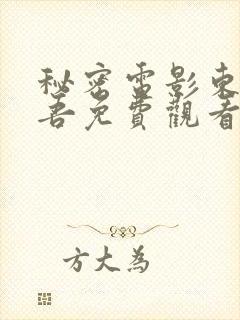 秘密電影東
吾免費觀看
方大為